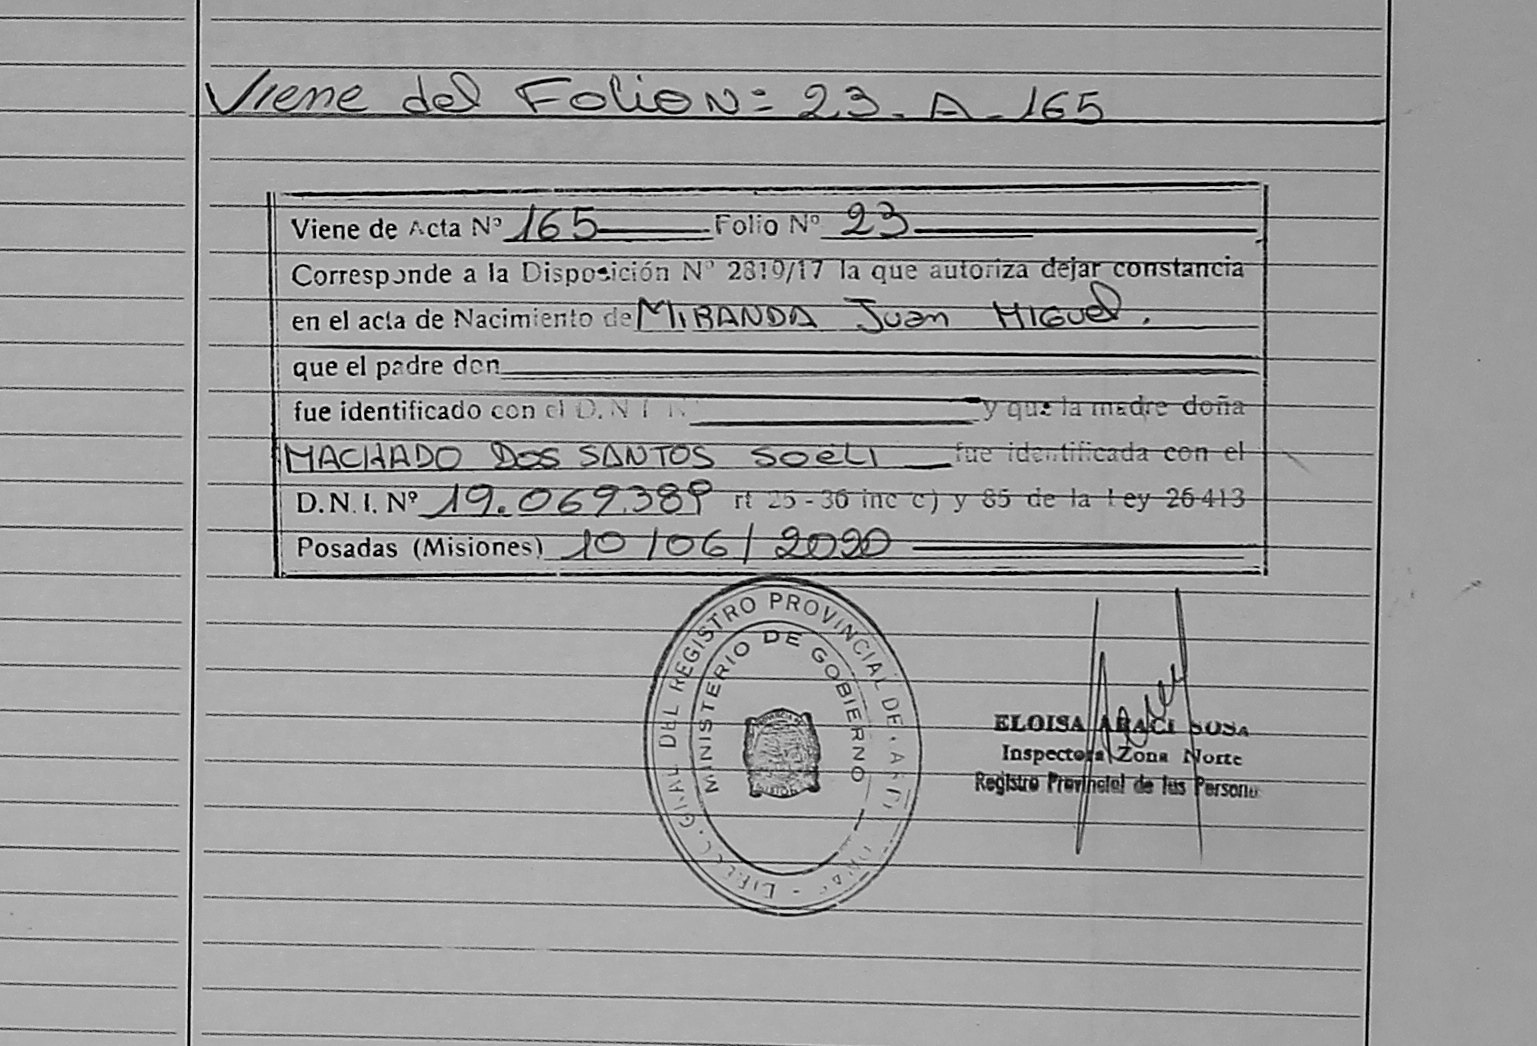 Viene del Folio N= 23. A. 165
Viene de Acta Nº 165 Folio Nº 23
Corresponde a la Disposición Nº 2810/17 la que autoriza dejar constancia
en el acta de Nacimiento de MIRANDA Juan MIGUel.
que el padre don
fue identificado con el D.N.I. Nº y que la madre doña
MACHADO DOS SANTOS SOELI fue identificada con el
D.N.I. Nº 19.069.389 rt 25-36 inc c) y 85 de la Ley 26413
Posadas (Misiones) 10/06/2020
GRAL DEL REGISTRO PROVINCIAL DE
MINISTERIO DE GOBIERNO
ELOISA ARACI SOSA
Inspectora Zona Norte
Registro Provincial de las Persona